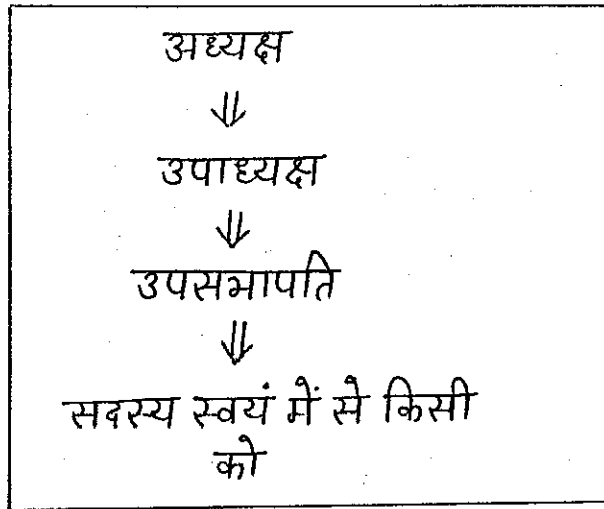 अध्यक्ष
⇓
उपाध्यक्ष
⇓
उपसभापति
⇓
सदस्य स्वयं में से किसी
को